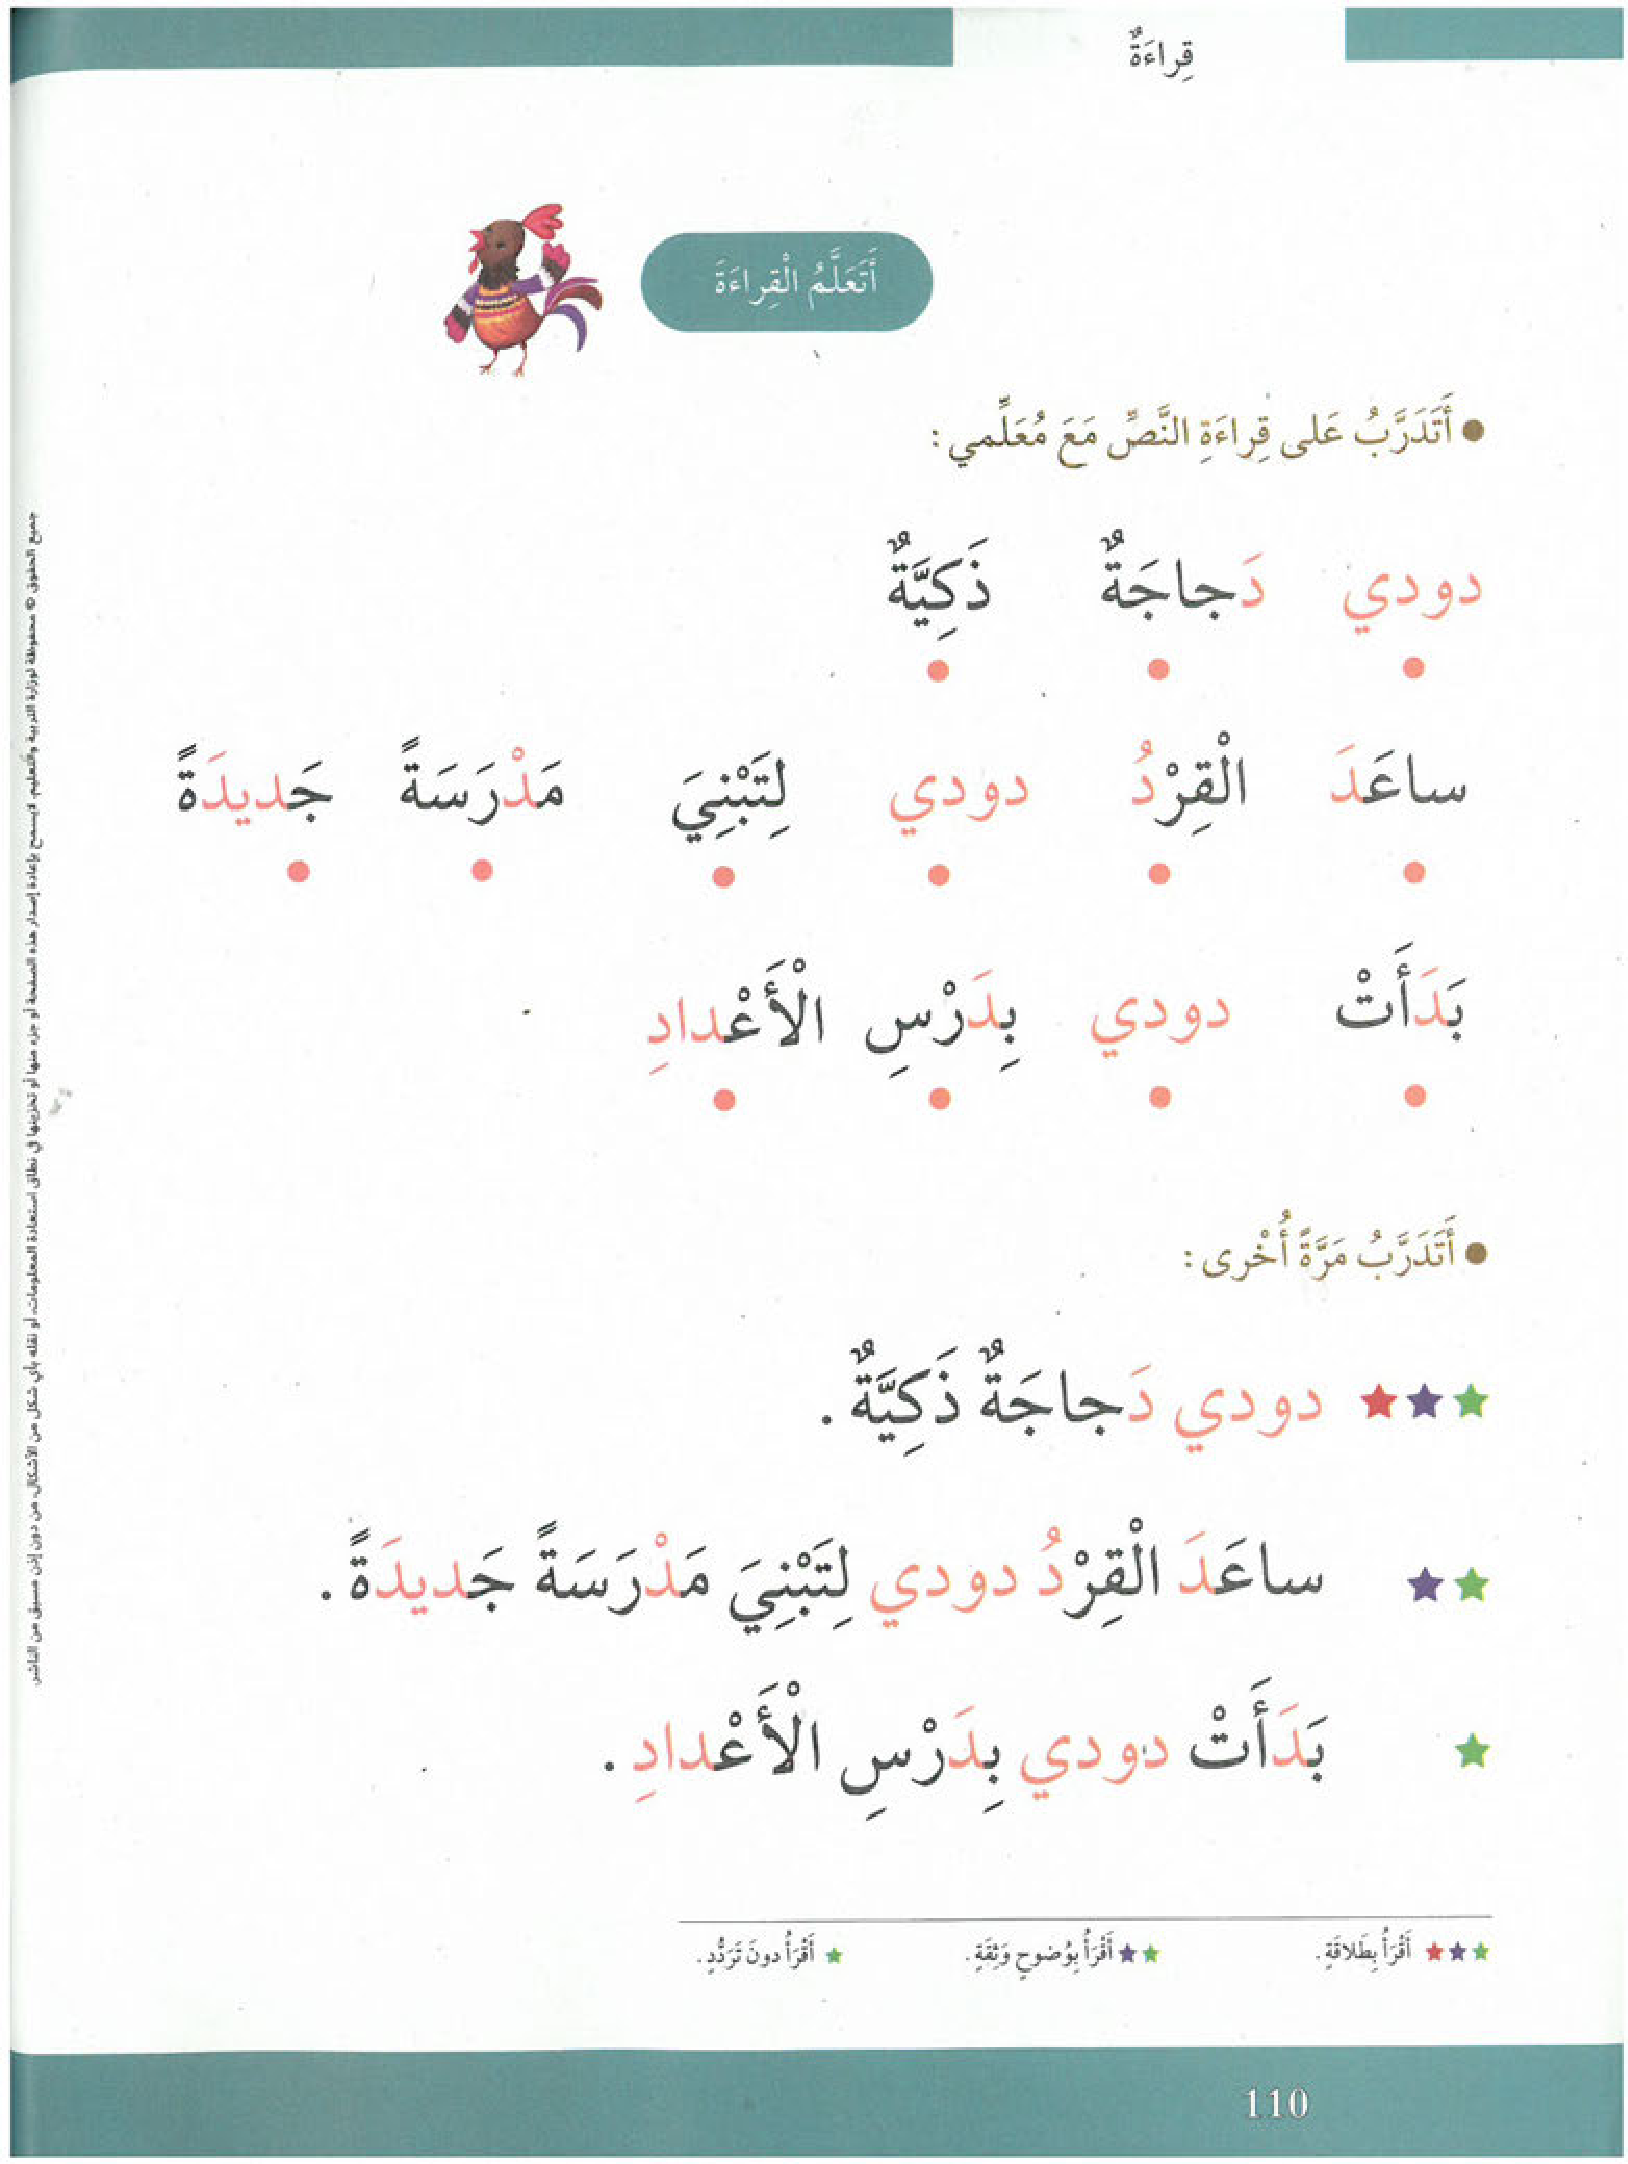 قِراءَةٌ
أَتَعَلَّمُ الْقِراءَةَ
● أَتَدَرَّبُ عَلى قِراءَةِ النَّصِّ مَعَ مُعَلِّمي :
دودي دَجاجَةٌ ذَكِيَّةٌ
ساعَدَ الْقِرْدُ دودي لِتَبْنِيَ مَدْرَسَةً جَديدَةً
بَدَأَتْ دودي بِدَرْسِ الْأَعْدادِ
● أَتَدَرَّبُ مَرَّةً أُخْرى :
★★★ دودي دَجاجَةٌ ذَكِيَّةٌ .
★★ ساعَدَ الْقِرْدُ دودي لِتَبْنِيَ مَدْرَسَةً جَديدَةً .
★ بَدَأَتْ دودي بِدَرْسِ الْأَعْدادِ .
★★★ أَقْرَأُ بِطَلاقَةٍ . ★★ أَقْرَأُ بِوُضوحٍ وَثِقَةٍ . ★ أَقْرَأُ دونَ تَرَدُّدٍ .
110
جميع الحقوق © محفوظة لوزارة التربية والتعليم. لا يسمح بإعادة إصدار هذه الصفحة أو جزء منها أو تخزينها في نطاق استعادة المعلومات، أو نقله بأي شكل من الأشكال، من دون إذن مسبق من الناشر.